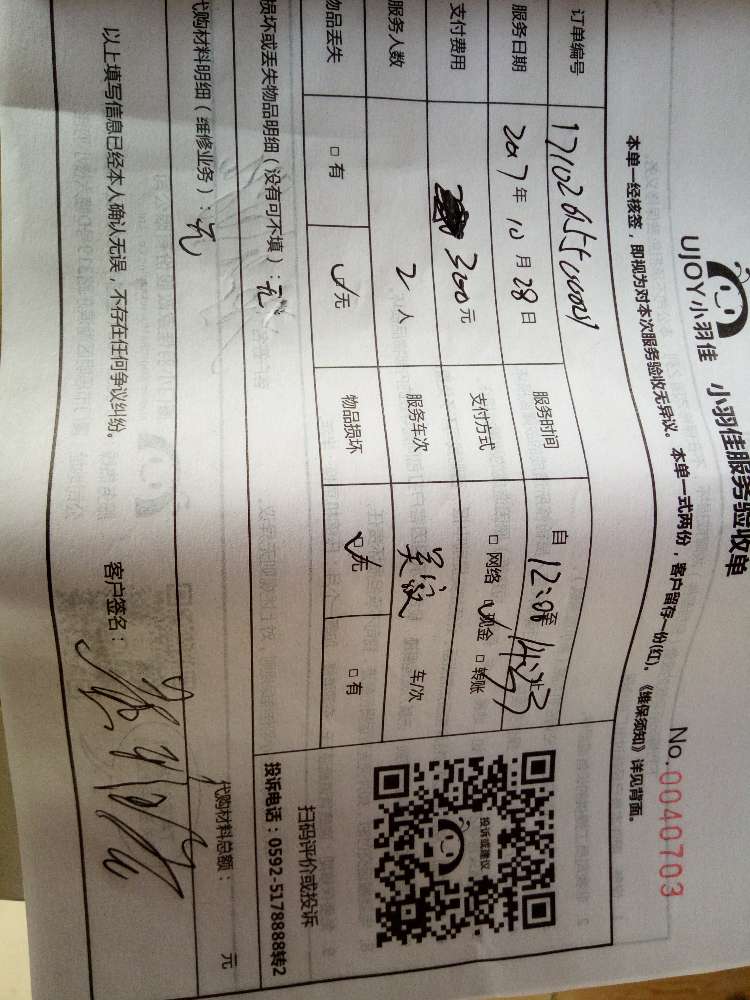 UJOY小羽佳 小羽佳服务验收单
No.0040703
本单一经核签，即视为对本次服务验收无异议。本单一式两份，客户留存一份(红)。《维保须知》详见背面。
订单编号
服务日期 2017年10月28日 服务时间 自12:08至
支付费用 300元 支付方式 □网络 现金 □转账
服务人数 2人 服务车次 车/次
物品丢失 □有 无 物品损坏 无 □有
投诉或建议
扫码评价或投诉
投诉电话：0592-5178888转2
损坏或丢失物品明细（没有可不填）：无
代购材料明细（维修业务）：无 代购材料总额： 元
以上填写信息已经本人确认无误，不存在任何争议纠纷。 客户签名：